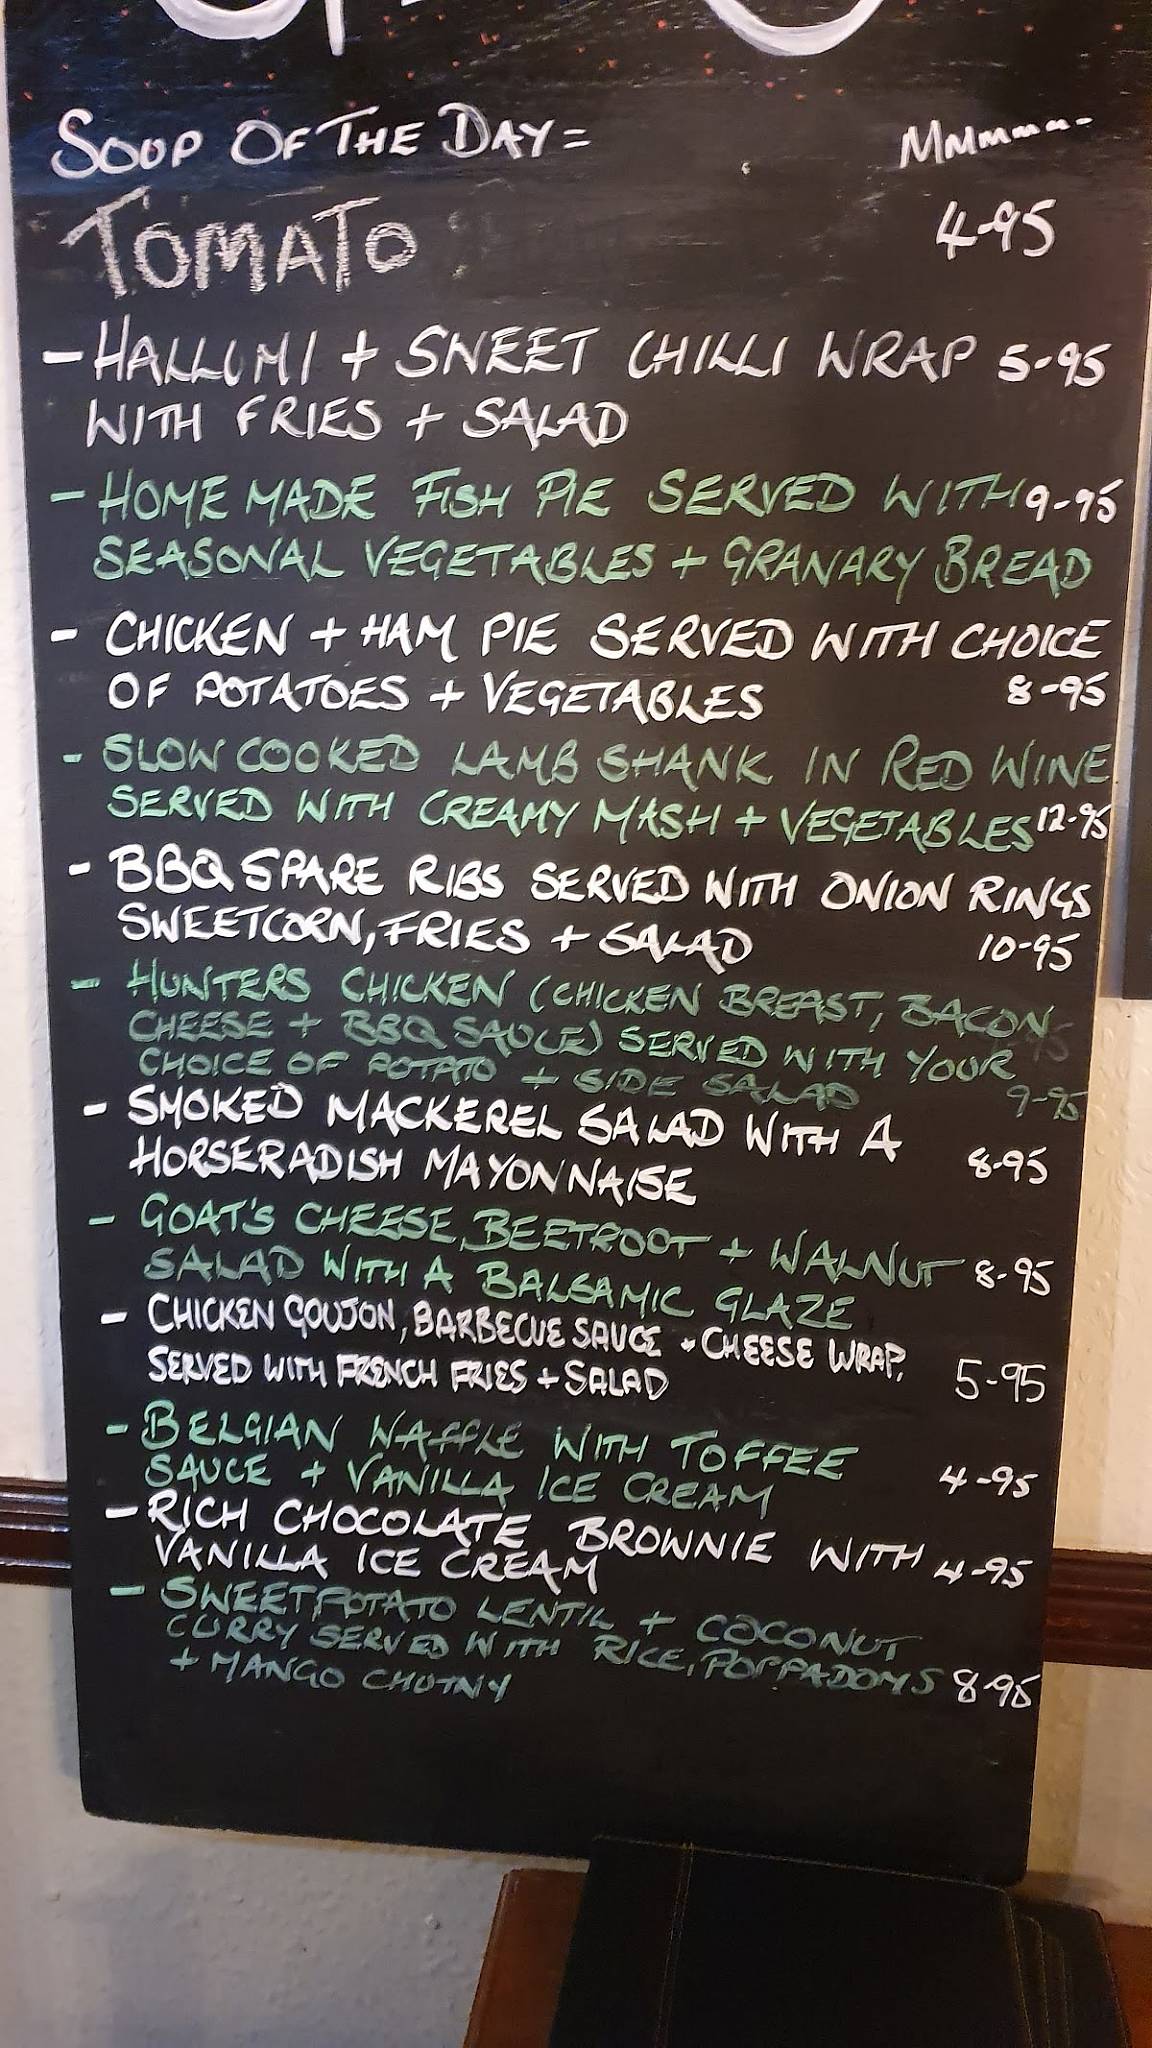 SOUP OF THE DAY = Mmmmm--
TOMATO 4-95
- HALLUMI + SWEET CHILLI WRAP 5-95
WITH FRIES + SALAD
- HOME MADE FISH PIE SERVED WITH 9-95
SEASONAL VEGETABLES + GRANARY BREAD
- CHICKEN + HAM PIE SERVED WITH CHOICE
OF POTATOES + VEGETABLES 8-95
- SLOW COOKED LAMB SHANK IN RED WINE
SERVED WITH CREAMY MASH + VEGETABLES 12-95
- BBQ SPARE RIBS SERVED WITH ONION RINGS
SWEETCORN, FRIES + SALAD 10-95
- HUNTERS CHICKEN (CHICKEN BREAST, BACON
CHEESE + BBQ SAUCE) SERVED WITH YOUR
CHOICE OF POTATO + SIDE SALAD 9-95
- SMOKED MACKEREL SALAD WITH A
HORSERADISH MAYONNAISE 8-95
- GOAT'S CHEESE, BEETROOT + WALNUT
SALAD WITH A BALSAMIC GLAZE 8-95
- CHICKEN GOUJON, BARBECUE SAUCE + CHEESE WRAP.
SERVED WITH FRENCH FRIES + SALAD 5-95
- BELGIAN WAFFLE WITH TOFFEE
SAUCE + VANILLA ICE CREAM 4-95
- RICH CHOCOLATE BROWNIE WITH 4-95
VANILLA ICE CREAM
- SWEETPOTATO LENTIL + COCONUT
CURRY SERVED WITH RICE, POPPADOMS 8-95
+ MANGO CHUTNY